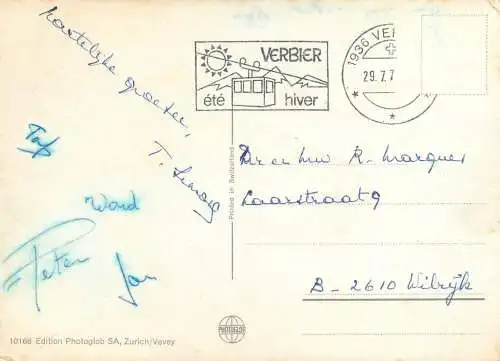 Hartelijke groeten,
T. Simons
Ward
Peter
Jan
VERBIER
été hiver
1936 VE
29.7.7
Printed in Switzerland
Dr en Mw R. Marquet
Laarstraat 9
B-2610 Wilrijk
PHOTOGLOB
10166 Edition Photoglob SA, Zurich/Vevey